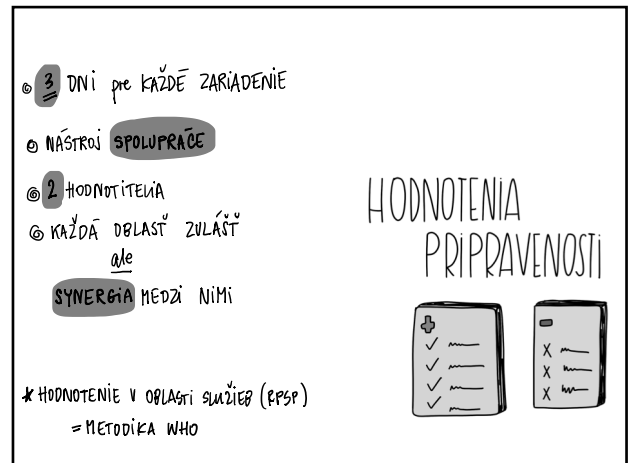 3 DNi pre KAŽDÉ ZARiADENiE
NÁSTROJ SPOLUPRÁCE
2 HODNOTiTELiA
KAŽDÁ OBLASŤ ZVLÁŠŤ
ale
SYNERGiA MEDZi NiMi
* HODNOTENiE V OBLASTi SLUŽiEB (RPSP)
= METODiKA WHO
HODNOTENiA
PRiPRAVENOSTi